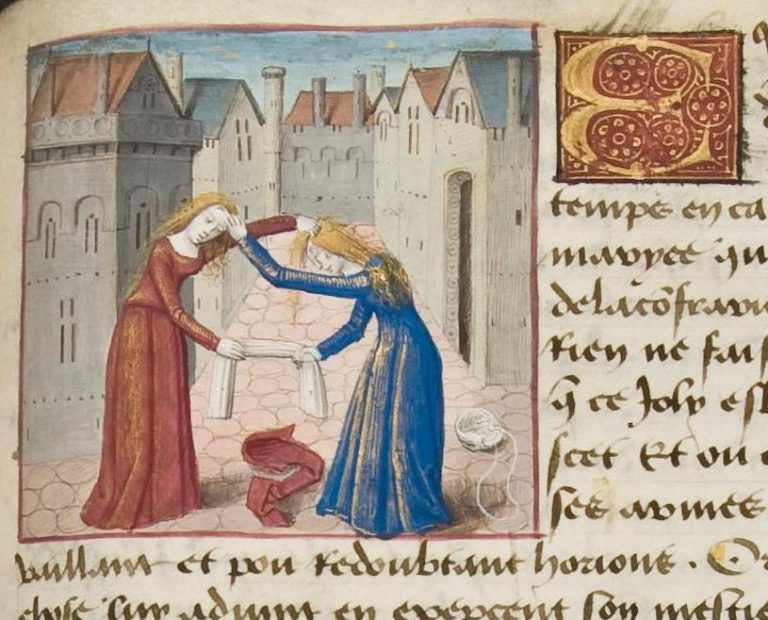 temps en ca
mariee qu
de la cõfrari
Rien ne fais
q̃ ce Joly est
scet Et ou
ses armes
vaillant et pou Redoubtant horions . Or
chose luy aduint en exercent son mestie